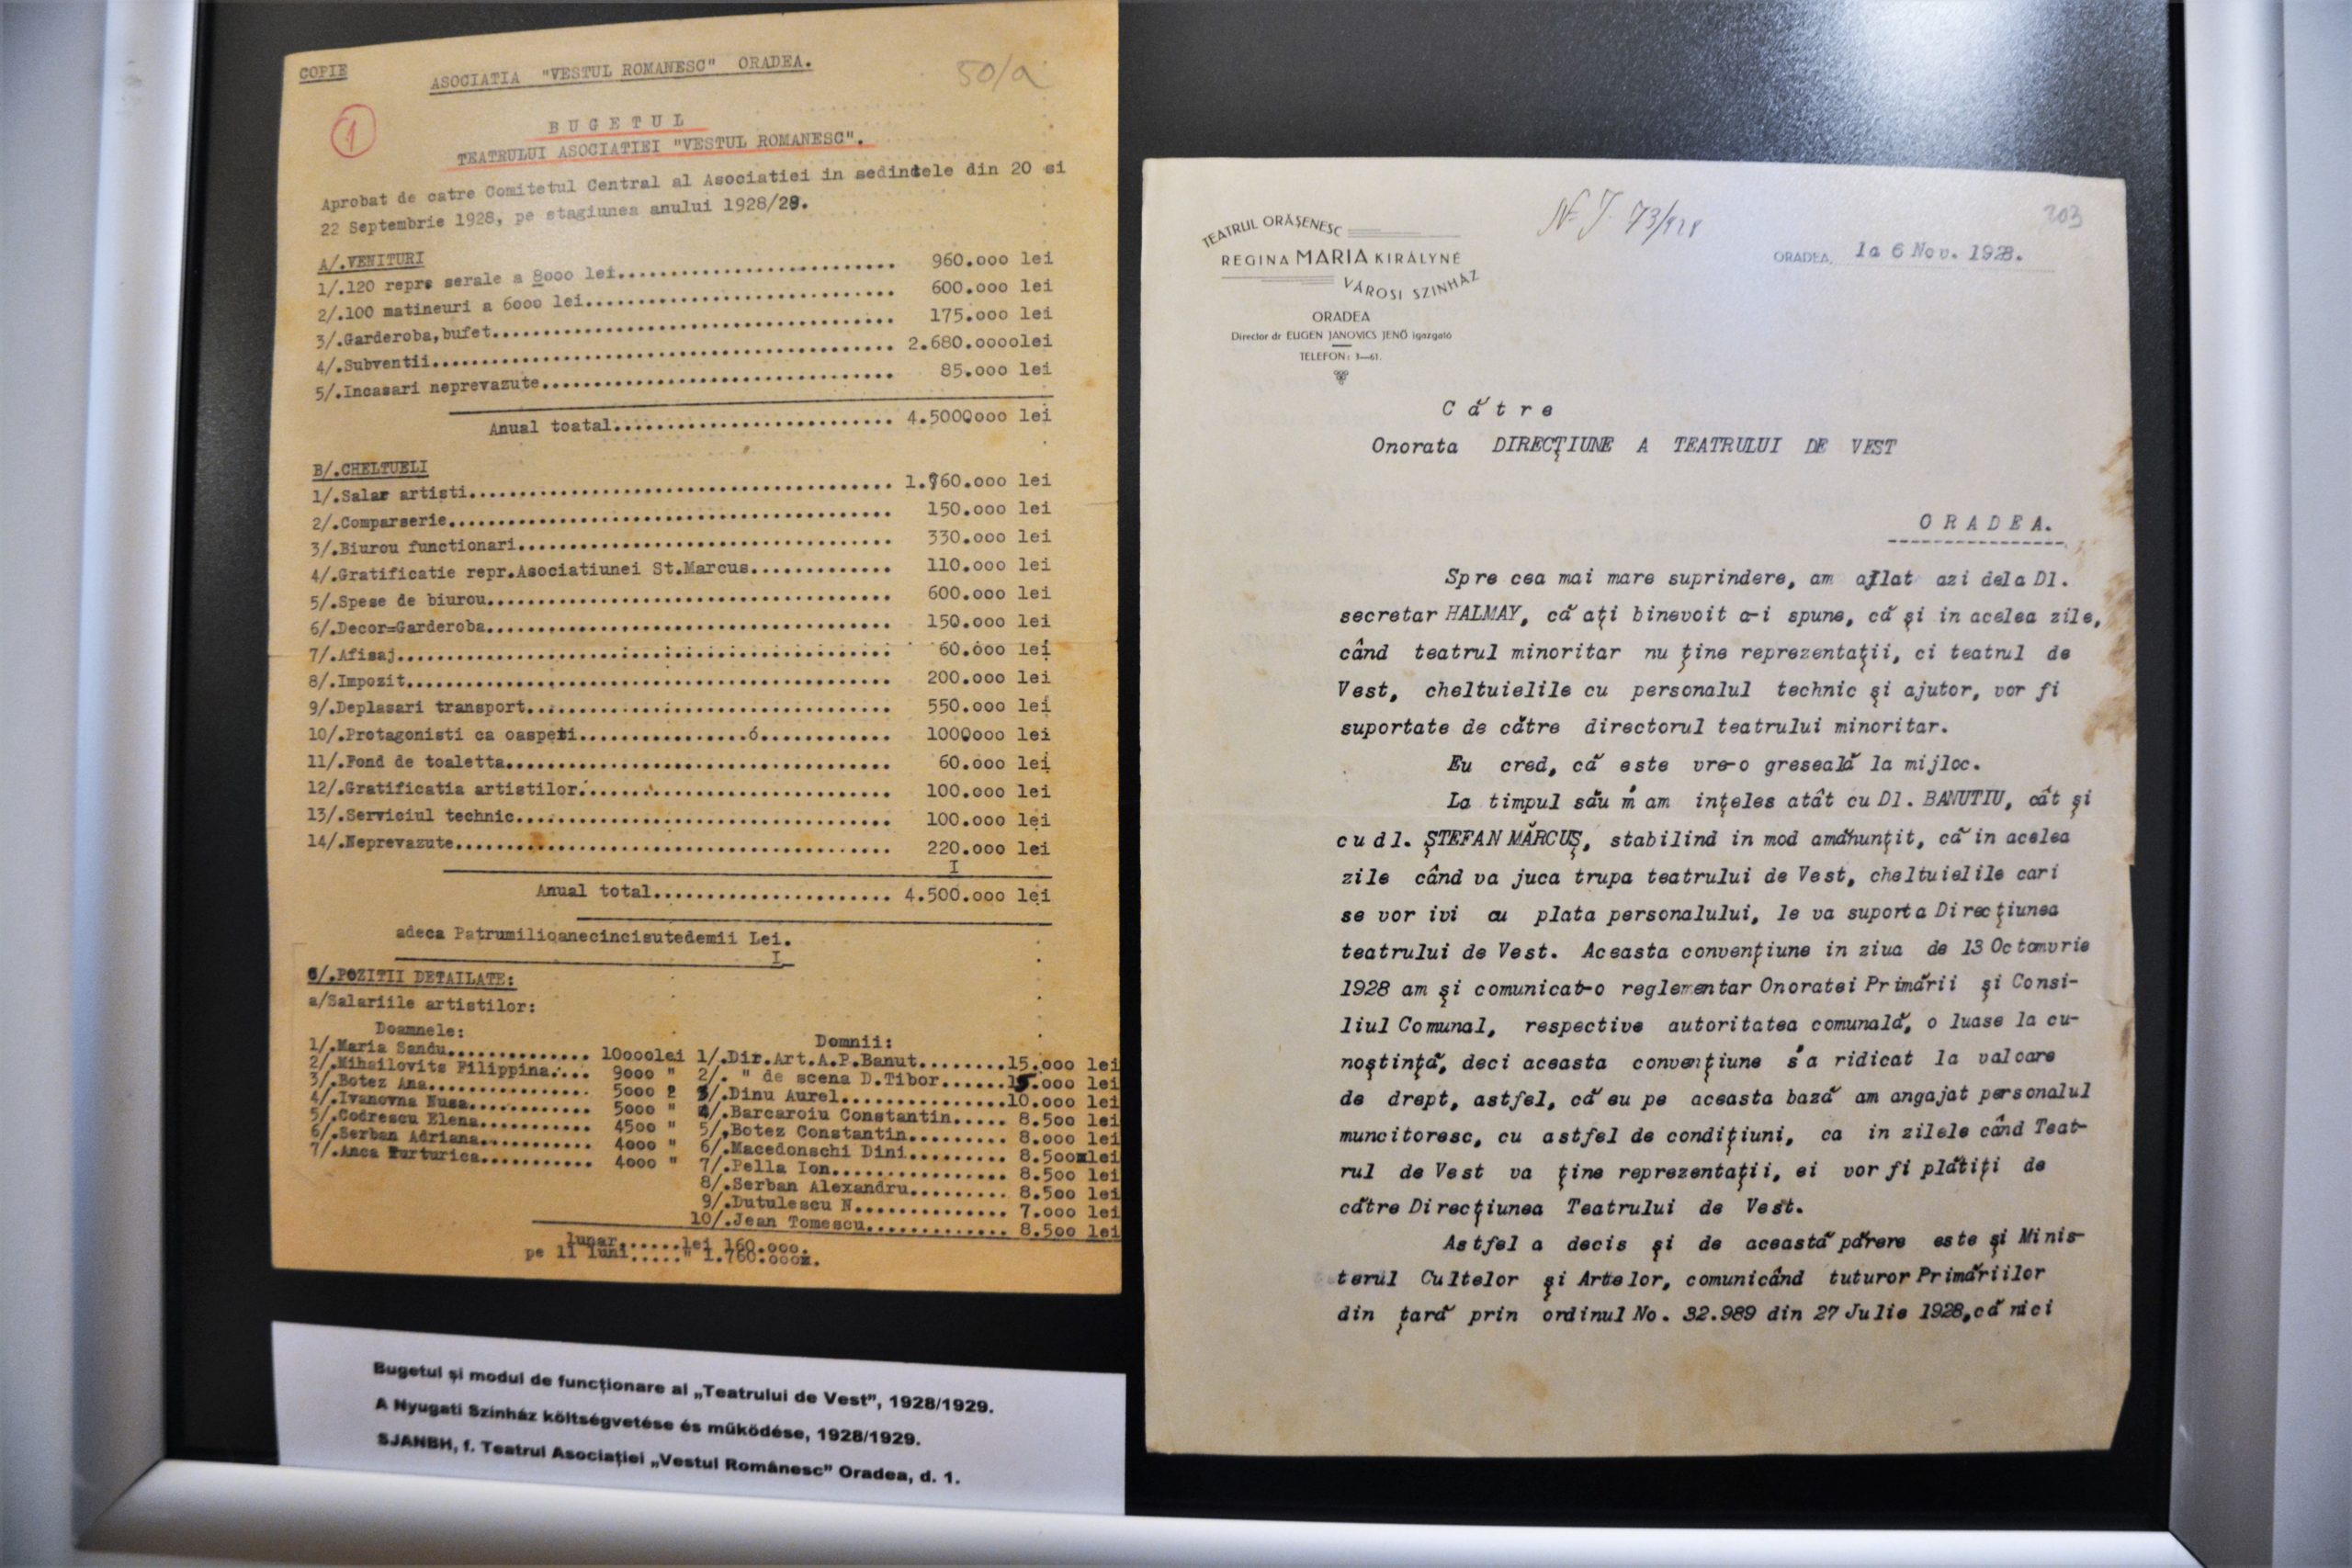 COPIE
ASOCIATIA "VESTUL ROMANESC" ORADEA.
50/a
1
BUGETUL
TEATRULUI ASOCIATIEI "VESTUL ROMANESC".
Aprobat de catre Comitetul Central al Asociatiei in sedintele din 20 si
22 Septembrie 1928, pe stagiunea anului 1928/29.
A/.VENITURI
1/.120 repre serale a 8000 lei.......................... 960.000 lei
2/.100 matineuri a 6000 lei.............................. 600.000 lei
3/.Garderoba,bufet....................................... 175.000 lei
4/.Subventii............................................. 2.680.0000lei
5/.Incasari neprevazute.................................. 85.000 lei
Anual toatal........................... 4.5000000 lei
B/.CHELTUELI
1/.Salar artisti......................................... 1.960.000 lei
2/.Comparserie........................................... 150.000 lei
3/.Biurou functionari.................................... 330.000 lei
4/.Gratificatie repr.Asociatiunei St.Marcus............. 110.000 lei
5/.Spese de biurou....................................... 600.000 lei
6/.Decor=Garderoba....................................... 150.000 lei
7/.Afisaj................................................ 60.000 lei
8/.Impozit............................................... 200.000 lei
9/.Deplasari transport................................... 550.000 lei
10/.Protagonisti ca oaspeti................6............ 1000000 lei
11/.Fond de toaletta..................................... 60.000 lei
12/.Gratificatia artistilor.............................. 100.000 lei
13/.Serviciul technic.................................... 100.000 lei
14/.Neprevazute.......................................... 220.000 lei
I
Anual total....................... 4.500.000 lei
adeca Patrumilioanecincisutedemii Lei.
I
C/.POZITII DETAILATE:
a/Salariile artistilor:
Doamnele:
1/.Maria Sandu.............. 10000lei
2/.Mihailovits Filippina.... 9000 "
3/.Botez Ana................ 5000 2
4/.Ivanovna Nusa............ 5000 "
5/.Codrescu Elena........... 4500 "
6/.Serban Adriana........... 4000 "
7/.Anca Turturica........... 4000 "
Domnii:
1/.Dir.Art.A.P.Banut........15.000 lei
2/. " de scena D.Tibor......15.000 lei
3/.Dinu Aurel................10.000 lei
4/.Barcaroiu Constantin..... 8.500 lei
5/.Botez Constantin.......... 8.000 lei
6/.Macedonschi Dini.......... 8.500mlei
7/.Pella Ion................. 8.500 lei
8/.Serban Alexandru.......... 8.500 lei
9/.Dutulescu N............... 7.000 lei
10/.Jean Tomescu............. 8.500 lei
lunar......lei 160.000.
pe 11 luni....." 1.760.000m.
Bugetul și modul de funcționare al „Teatrului de Vest”, 1928/1929.
A Nyugati Színház költségvetése és működése, 1928/1929.
SJANBH, f. Teatrul Asociației „Vestul Românesc” Oradea, d. 1.
TEATRUL ORĂȘENESC
REGINA MARIA KIRÁLYNÉ
VÁROSI SZINHÁZ
ORADEA
Director dr EUGEN JANOVICS JENŐ igazgató
TELEFON: 3—61.
203
ORADEA, la 6 Nov. 1928.
Către
Onorata DIRECŢIUNE A TEATRULUI DE VEST
ORADEA.
Spre cea mai mare suprindere, am aflat azi dela Dl.
secretar HALMAY, că aţi binevoit a-i spune, că şi in acelea zile,
când teatrul minoritar nu ţine reprezentaţii, ci teatrul de
Vest, cheltuielile cu personalul technic şi ajutor, vor fi
suportate de către directorul teatrului minoritar.
Eu cred, că este vre-o greseală la mijloc.
La timpul său m'am inţeles atât cu Dl. BANUTIU, cât şi
cu dl. ŞTEFAN MĂRCUŞ, stabilind in mod amănunţit, că in acelea
zile când va juca trupa teatrului de Vest, cheltuielile cari
se vor ivi cu plata personalului, le va suporta Direcţiunea
teatrului de Vest. Aceasta convenţiune in ziua de 13 Octomvrie
1928 am şi comunicat-o reglementar Onoratei Primării şi Consi-
liul Comunal, respective autoritatea comunală, o luase la cu-
noştinţă, deci aceasta convenţiune s'a ridicat la valoare
de drept, astfel, că eu pe aceasta bază am angajat personalul
muncitoresc, cu astfel de condiţiuni, ca in zilele când Teat-
rul de Vest va ţine reprezentaţii, ei vor fi plătiţi de
către Direcţiunea Teatrului de Vest.
Astfel a decis şi de această părere este şi Minis-
terul Cultelor şi Artelor, comunicând tuturor Primăriilor
din ţară prin ordinul No. 32.989 din 27 Julie 1928,că nici